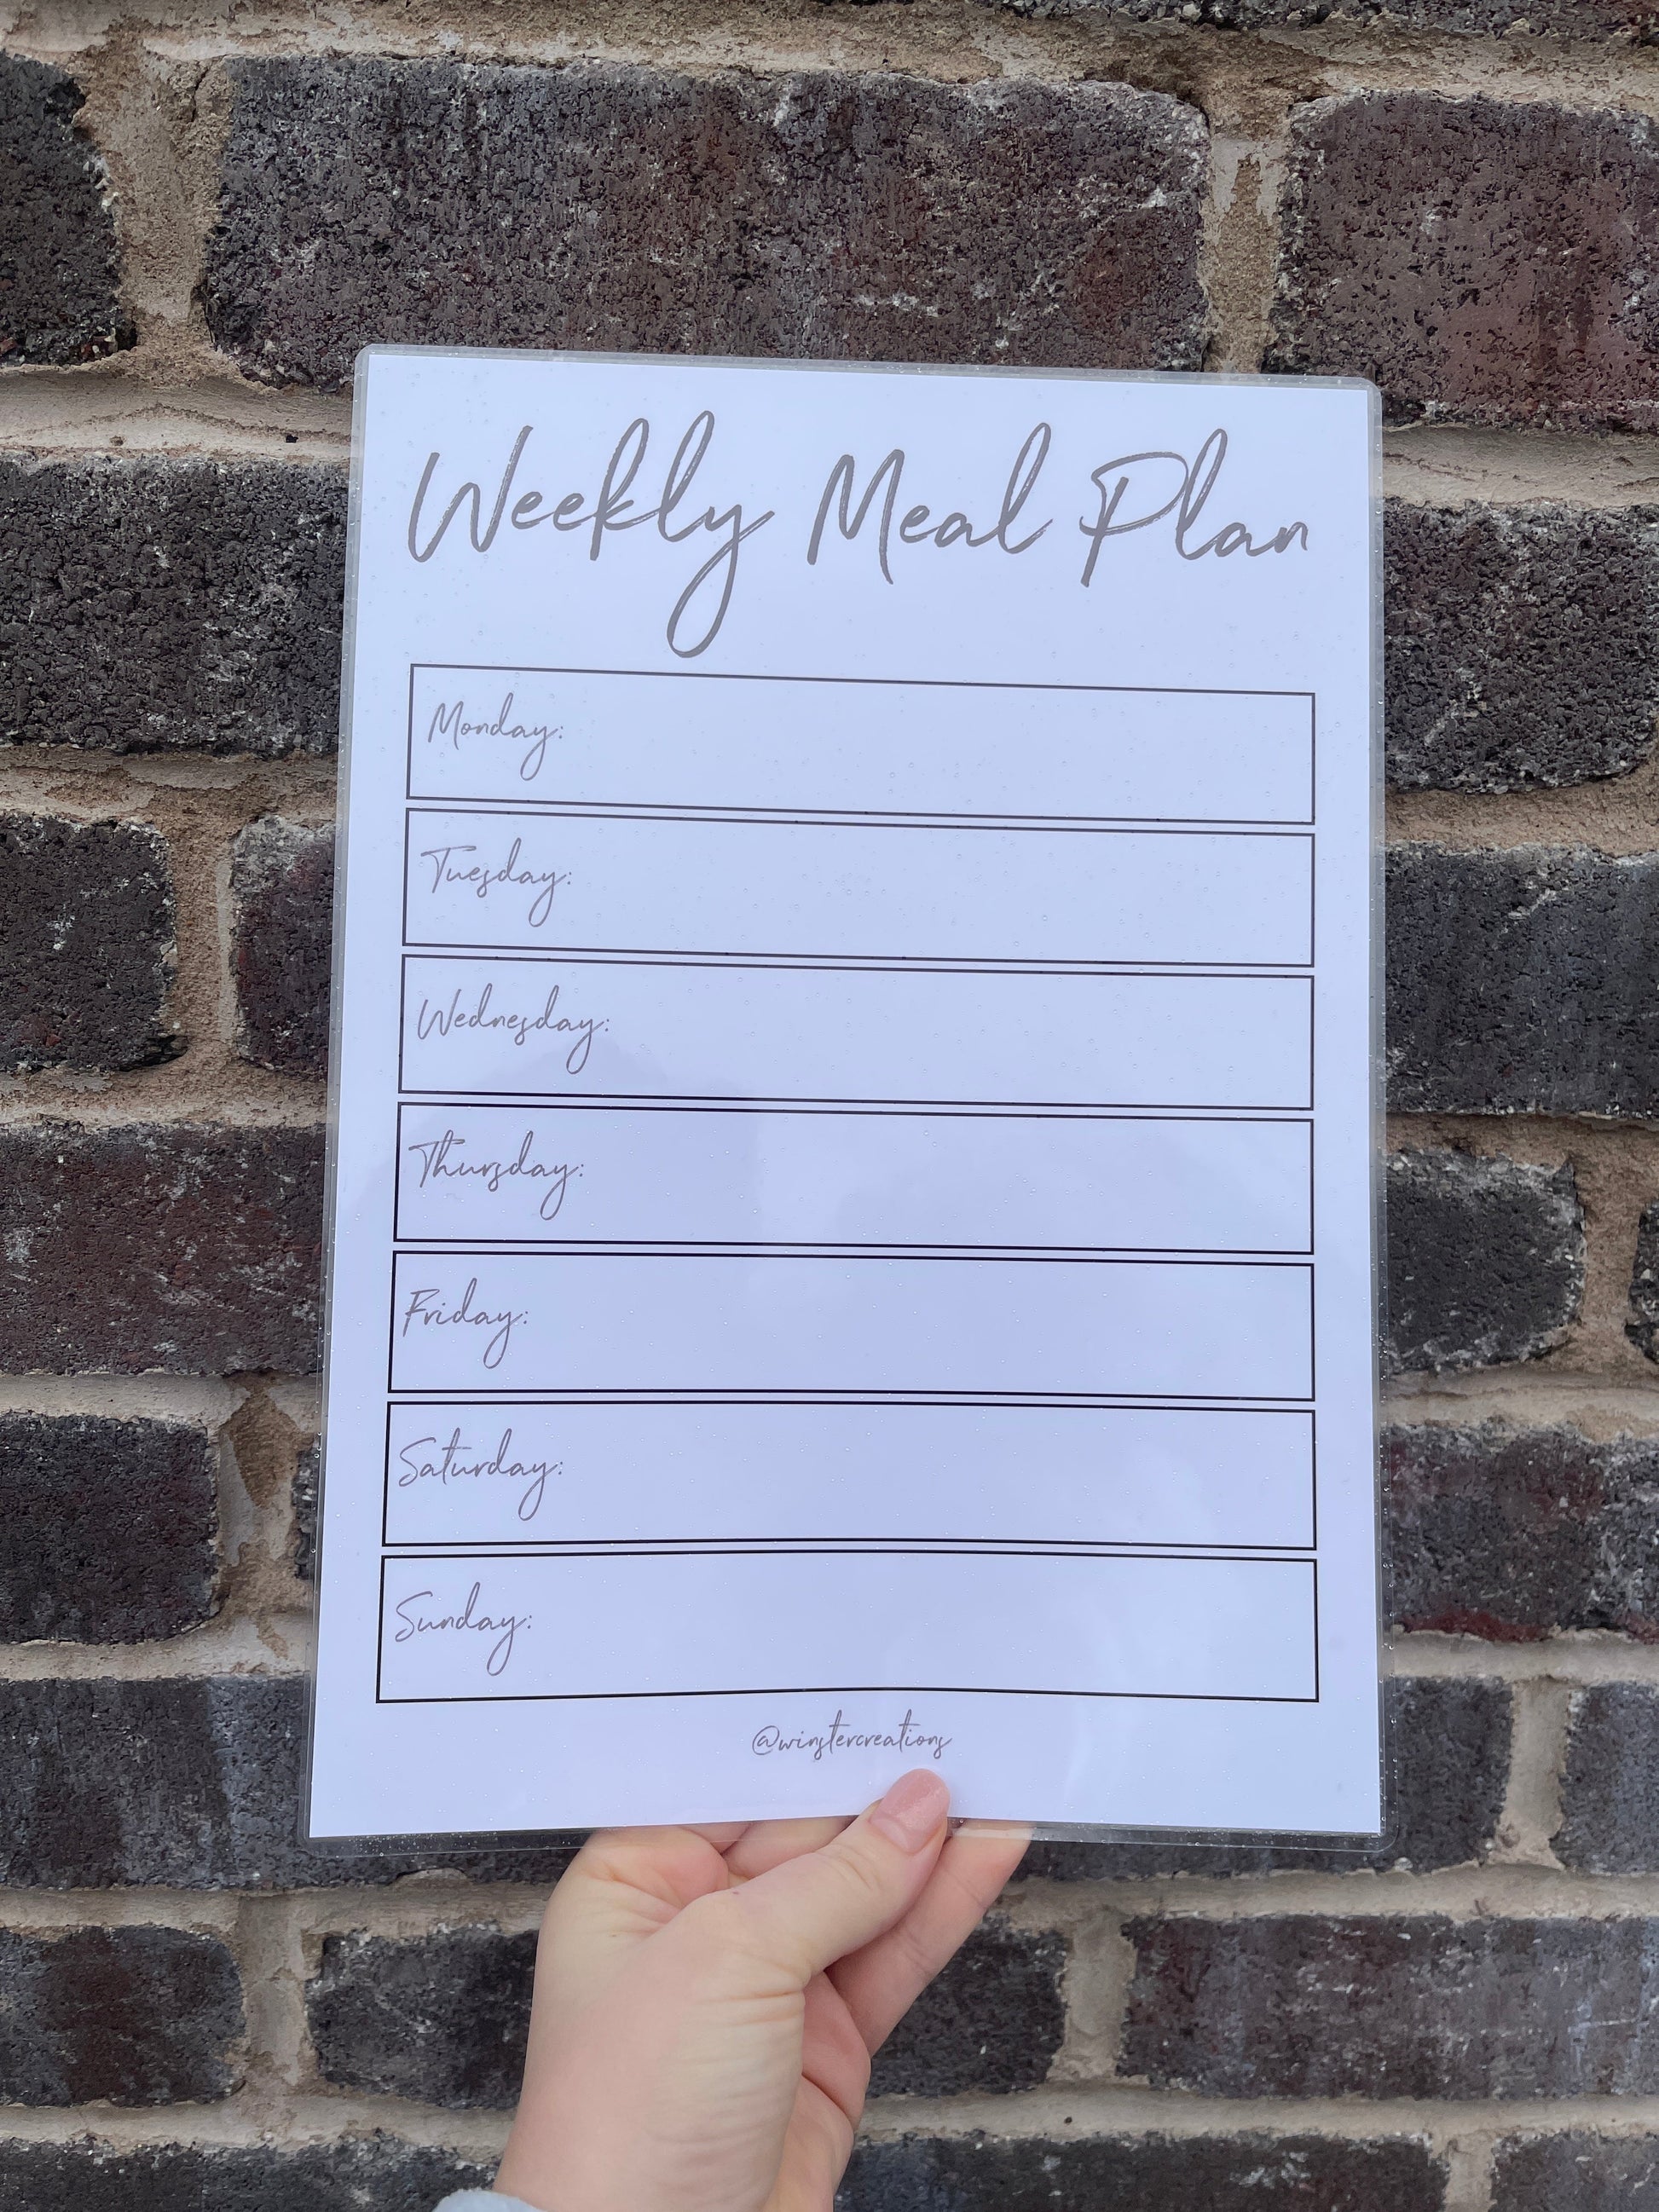 Weekly Meal Plan
Monday:
Tuesday:
Wednesday:
Thursday:
Friday:
Saturday:
Sunday:
@winstercreations